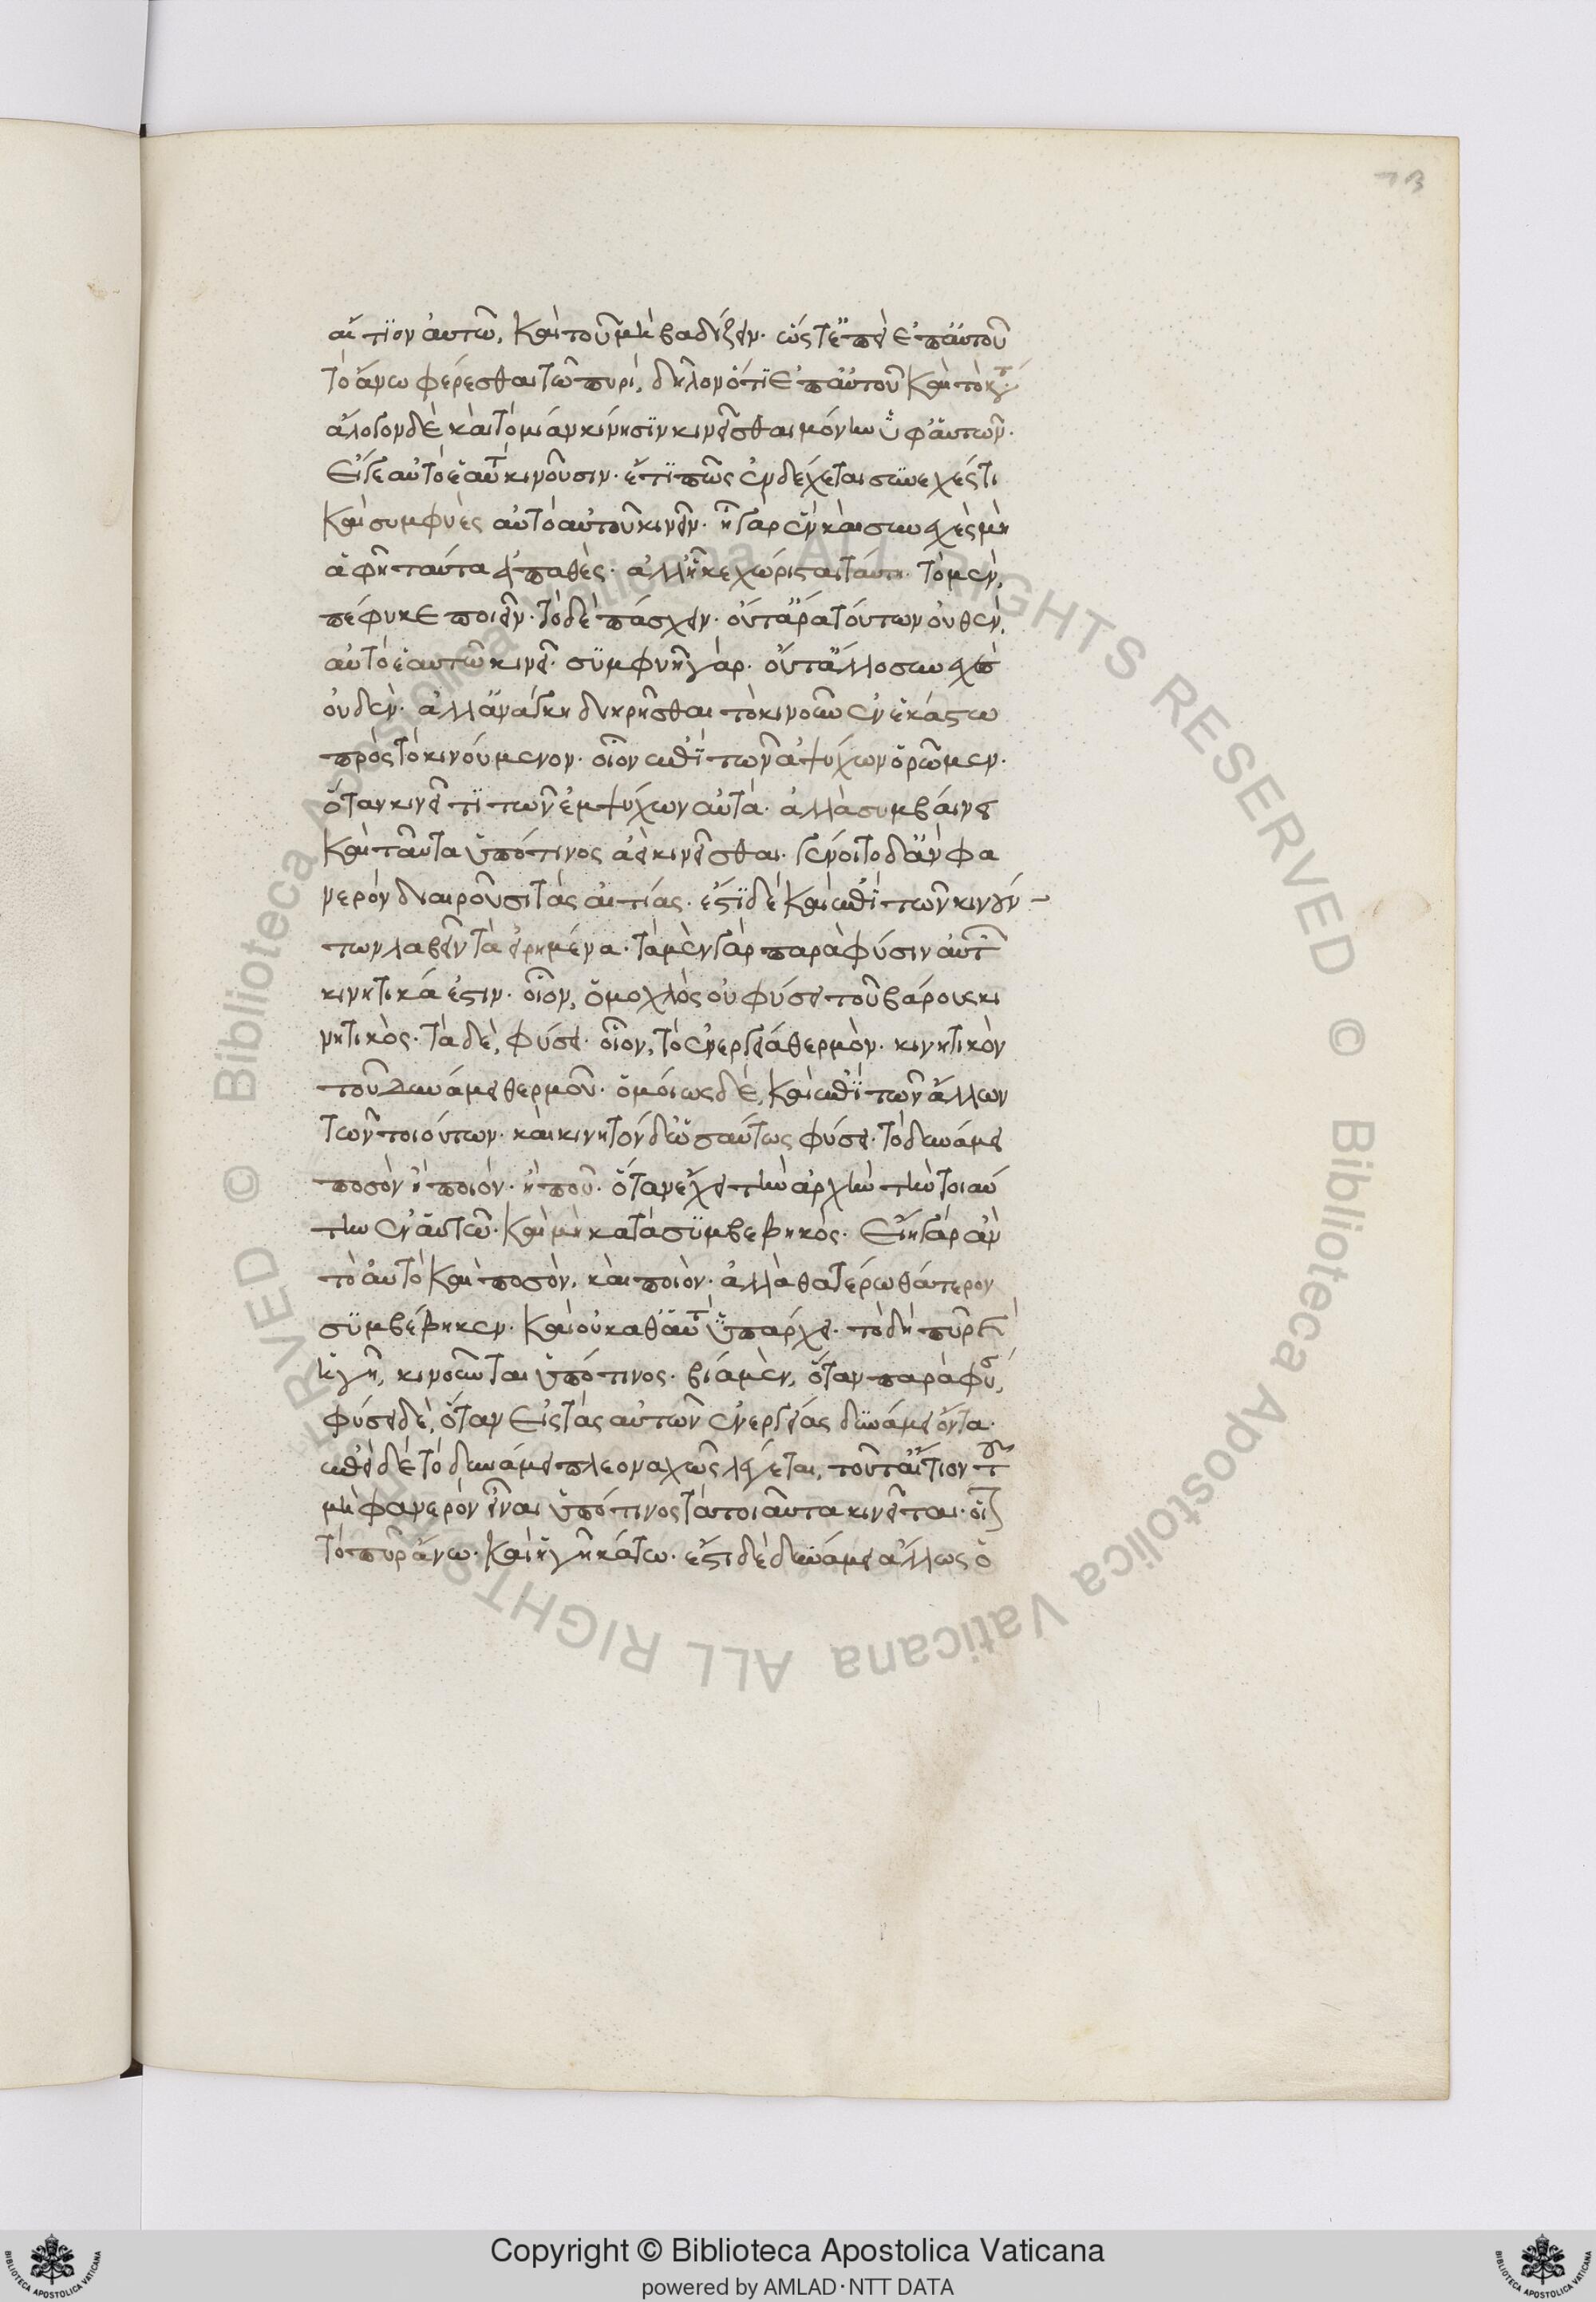 73
αἴτϊον ἁυτῶ, καὶ τοῦ μὴ βαδίζειν· ὥστε ἔπεὶ ἐπ' ἀυτοῦ
τὸ ἄνω φέρεσθαι τῶ πυρί, δηλονότι ἐπ' ἀυτοῦ καὶ τὸ κάτω
ἄλογον δὲ καὶ τὸ μιάν κίνησϊν κινεῖσθαι μόνην ὑφ' ἁυτῶν·
Εἴγε αὐτὸ ἑαυτὰ κινοῦσιν· ἔτϊ πῶς ἐνδέχεται συνεχές τι
καὶ συμφυὲς αὐτὸ αὑτοῦ κινεῖν· ἧ γὰρ ἓν καὶ συνεχὲς μὴ
ἁφῆ ταύτα ἀπαθὲς· ἀλλ' ἧ κεχώρισται ταύτη. τὸ μὲν,
πέφυκε ποιεῖν· τὸ δὲ πάσχειν· οὔτ' ἄρα τούτων ὀυθὲν,
αὐτὸ ἑαυτῶ κινεῖ· σϋμφυῆ γὰρ· οὔτ' ἄλλο συνεχὲς
ὀυδὲν· ἀλλ' ἀνάγκη διηρῆσθαι τὸ κινοῦν ἐν ἑκάστω
πρὸς τὸ κινούμενον· οἷον ἐπὶ τῶν ἀψύχων ὁρῶμεν·
ὅταν κινεῖ τϊ τῶν ἐμψύχων αὐτὰ· ἀλλὰ συμβάινει
καὶ ταῦτα ὑπό τινος ἀεὶ κινεῖσθαι· γένοιτο δ' ἂν φα
νερὸν διαιροῦσι τὰς αἰτίας· ἔστϊ δὲ καὶ ἐπὶ τῶν κινούν-
των λαβεῖν τὰ εἰρημένα· τὰ μὲν γὰρ παρὰ φύσιν αὐτῶν
κινητικά ἐστιν· οἷον, ὁ μοχλὸς οὐ φύσει τοῦ βάρους κι
νητικὸς· τὰ δὲ, φύσει· οἷον, τὸ ἐνεργείᾳ θερμὸν· κινητικὸν
τοῦ δυνάμει θερμοῦ· ὁμόιως δὲ, καὶ ἐπὶ τῶν ἄλλων
τῶν τοιούτων· καὶ κινητὸν δ' ὡσαύτως φύσει· τὸ δυνάμει
ποσὸν ἢ ποιόν· ἢ ποῦ· ὅταν ἔχει τὴν ἀρχὴν τὴν τοιαύ
την ἐν ἁυτῶ· καὶ μὴ κατὰ σϋμβεβηκὸς· Εἴη γὰρ ἂν
τὸ ἀυτὸ καὶ ποσὸν, καὶ ποιὸν· ἀλλὰ θατέρω θάτερον
σϋμβέβηκεν· καὶ οὐ καθ' ἁυτὸ ὑπάρχει· τὸ δὴ πῦρ καὶ
ἡ γῆ, κινοῦνται ὑπό τινος· βίᾳ μὲν, ὅταν παρὰ φύσιν,
φύσει δὲ, ὅταν εἰς τὰς αὐτῶν ἐνεργείας δυνάμει ὄντα·
ἐπεὶ δὲ τὸ δυνάμει πλεοναχῶς λέγεται, τοῦτ' αἴτιον τοῦ
μὴ φανερὸν εἶναι ὑπό τινος τὰ τοιαῦτα κινεῖται· οἷον
τὸ πῦρ ἄνω· καὶ ἡ γῆ κάτω· ἔστι δὲ δυνάμει ἄλλως ὁ
Copyright © Biblioteca Apostolica Vaticana
powered by AMLAD·NTT DATA
© Biblioteca Apostolica Vaticana ALL RIGHTS RESERVED © Biblioteca Apostolica Vaticana ALL RIGHTS RESERVED
BIBLIOTECA APOSTOLICA VATICANA
BIBLIOTECA APOSTOLICA VATICANA